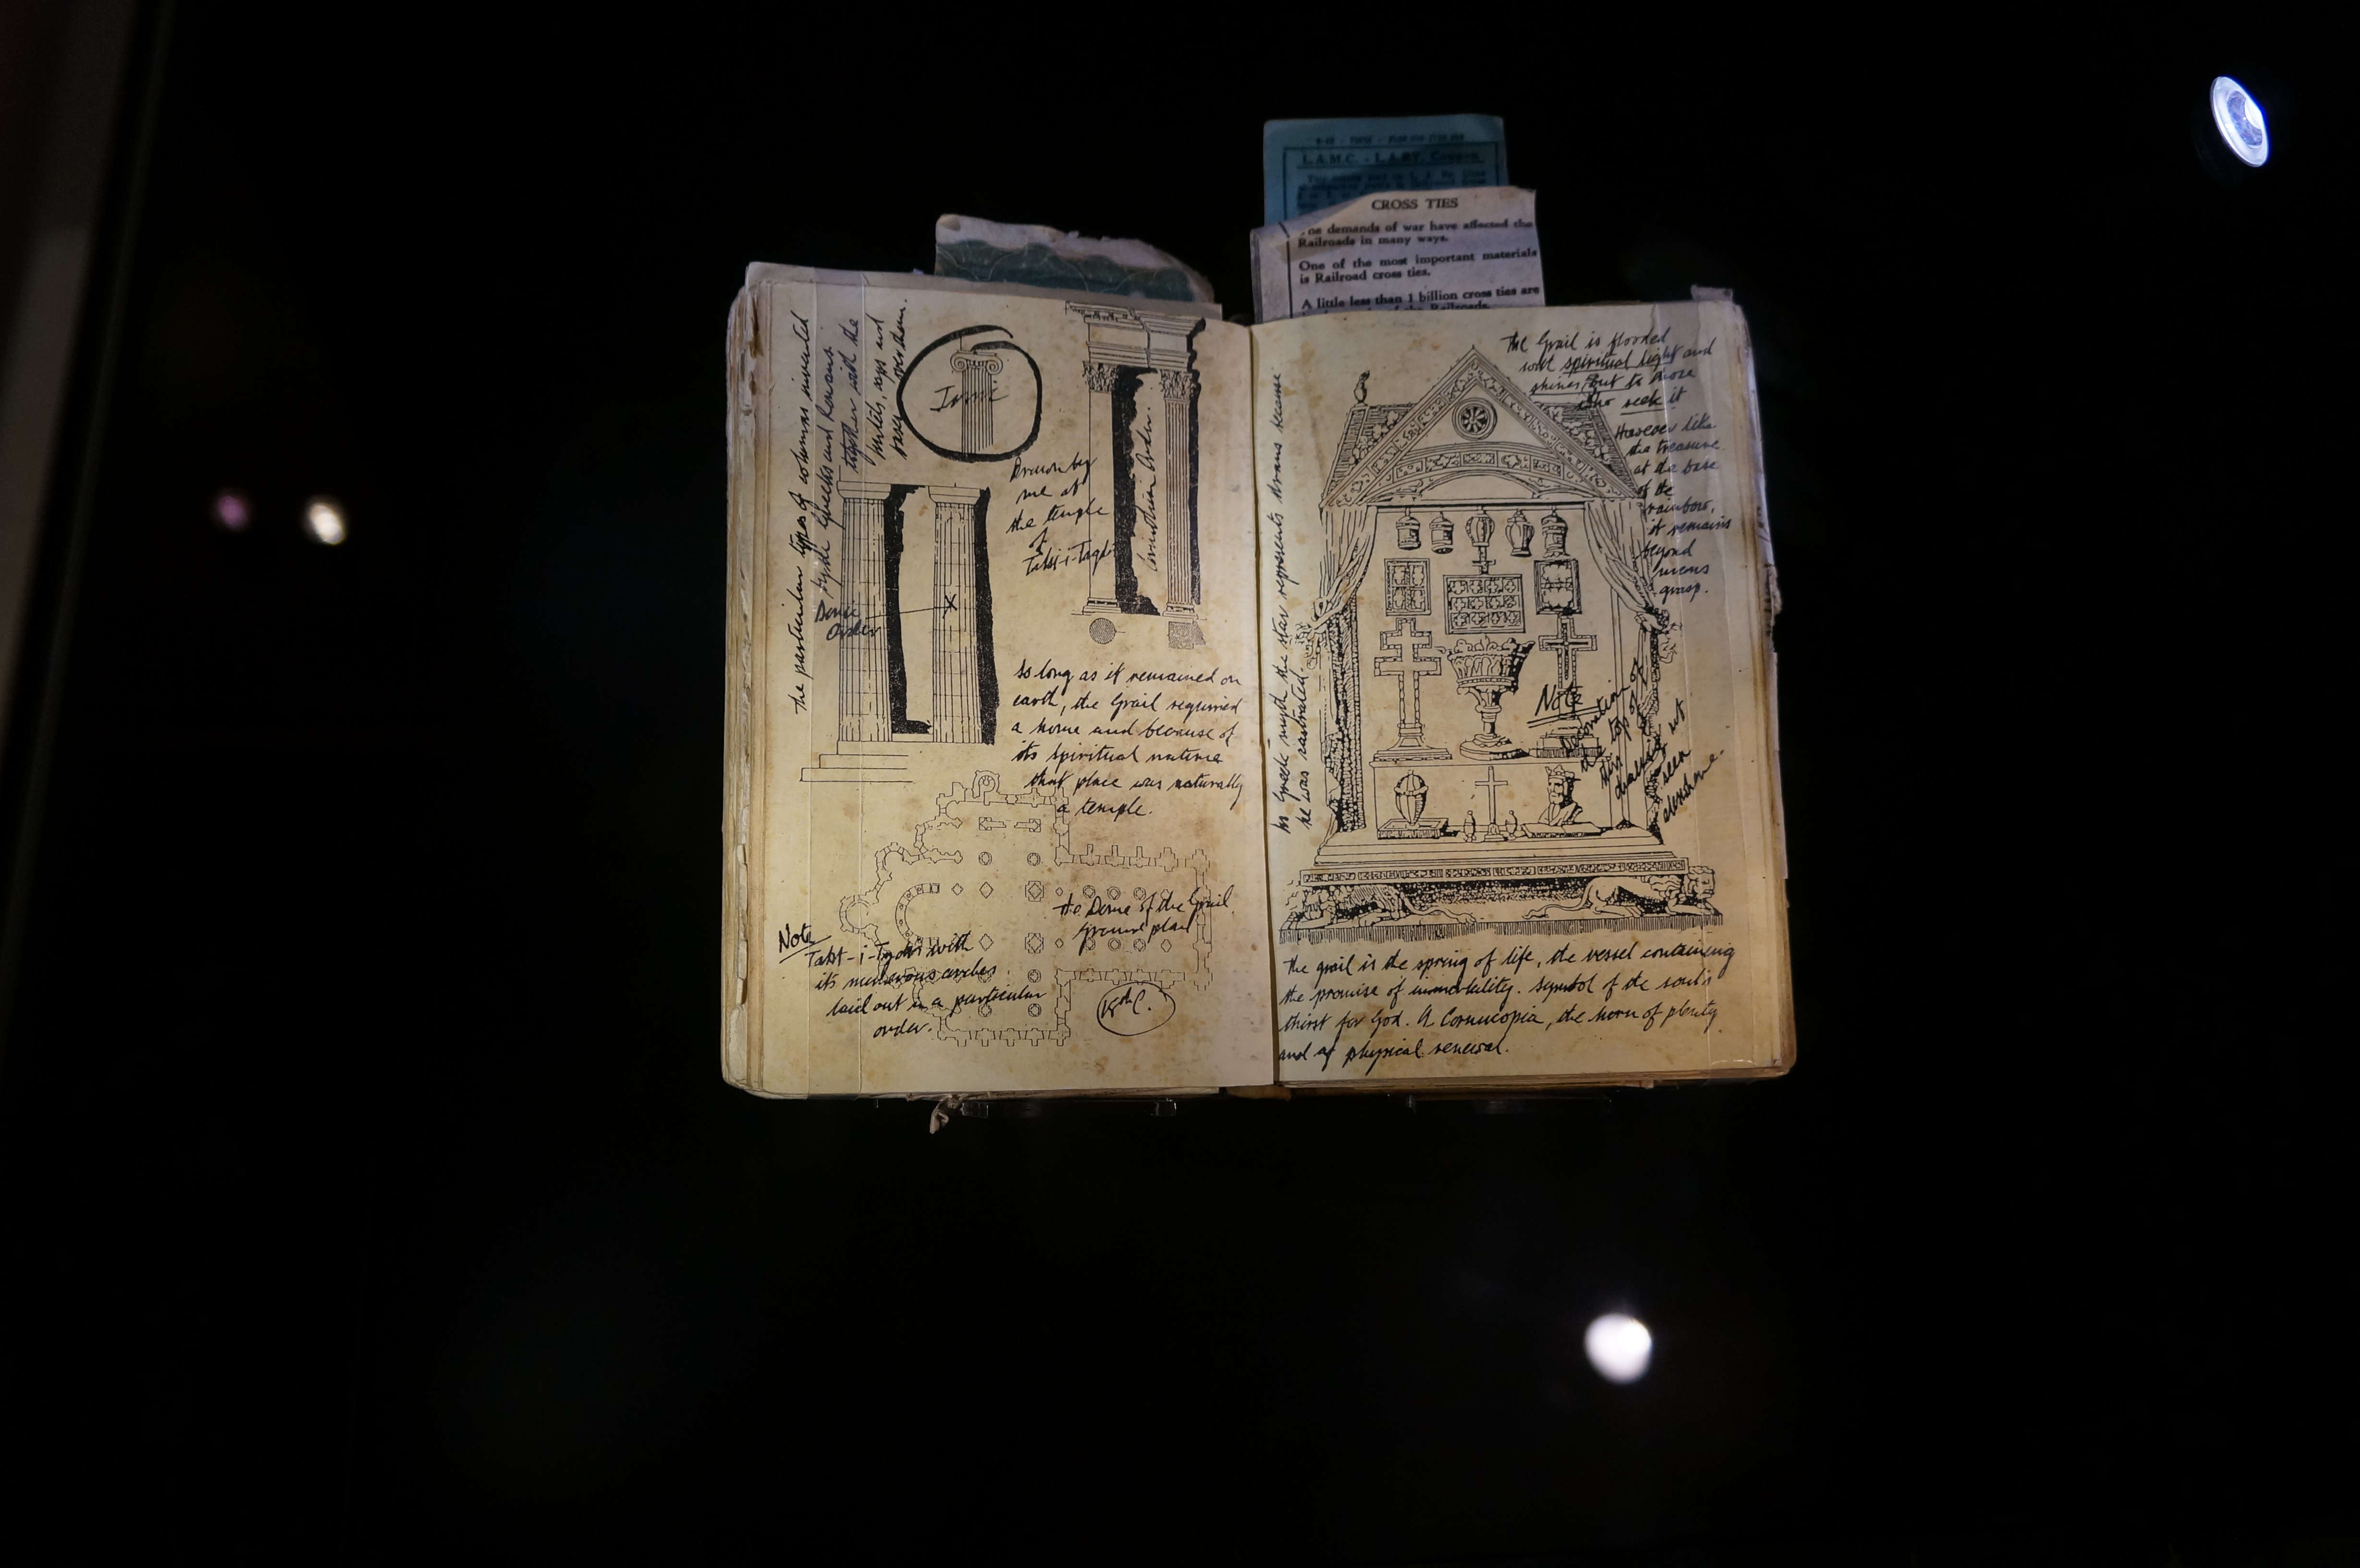 L.A.M.C. - L.A.RY. Coupon
CROSS TIES
demands of war have affected the
Railroads in many ways.
One of the most important materials
is Railroad cross ties.
A little less than 1 billion cross ties are
the particular types of columns invented
by the Greeks and Romans
together with the
lintels, caps and
bases over them.
Ionic
Drawn by
me at
the temple
of
Takt-i-Taqdis
Corinthian Order.
Doric
Order
So long as it remained on
earth, the Grail required
a home and because of
its spiritual nature
that place was naturally
a temple.
the Dome of the Grail
Ground plan
Note
Takt-i-Taqdis with
its numerous arches
laid out in a particular
order.
In Greek myth the star represents
he was
the Grail is flooded
with spiritual light and
shines out to those
who seek it
However like
the treasure
at the base
of the
rainbow,
it remains
beyond
mens
grasp.
Note
Decoration of
the top of
this
drawing not
seen
elsewhere.
the grail is the spring of life, the vessel containing
the promise of immortality. Symbol of the soul's
thirst for God. A Cornucopia, the horn of plenty
and of physical renewal.